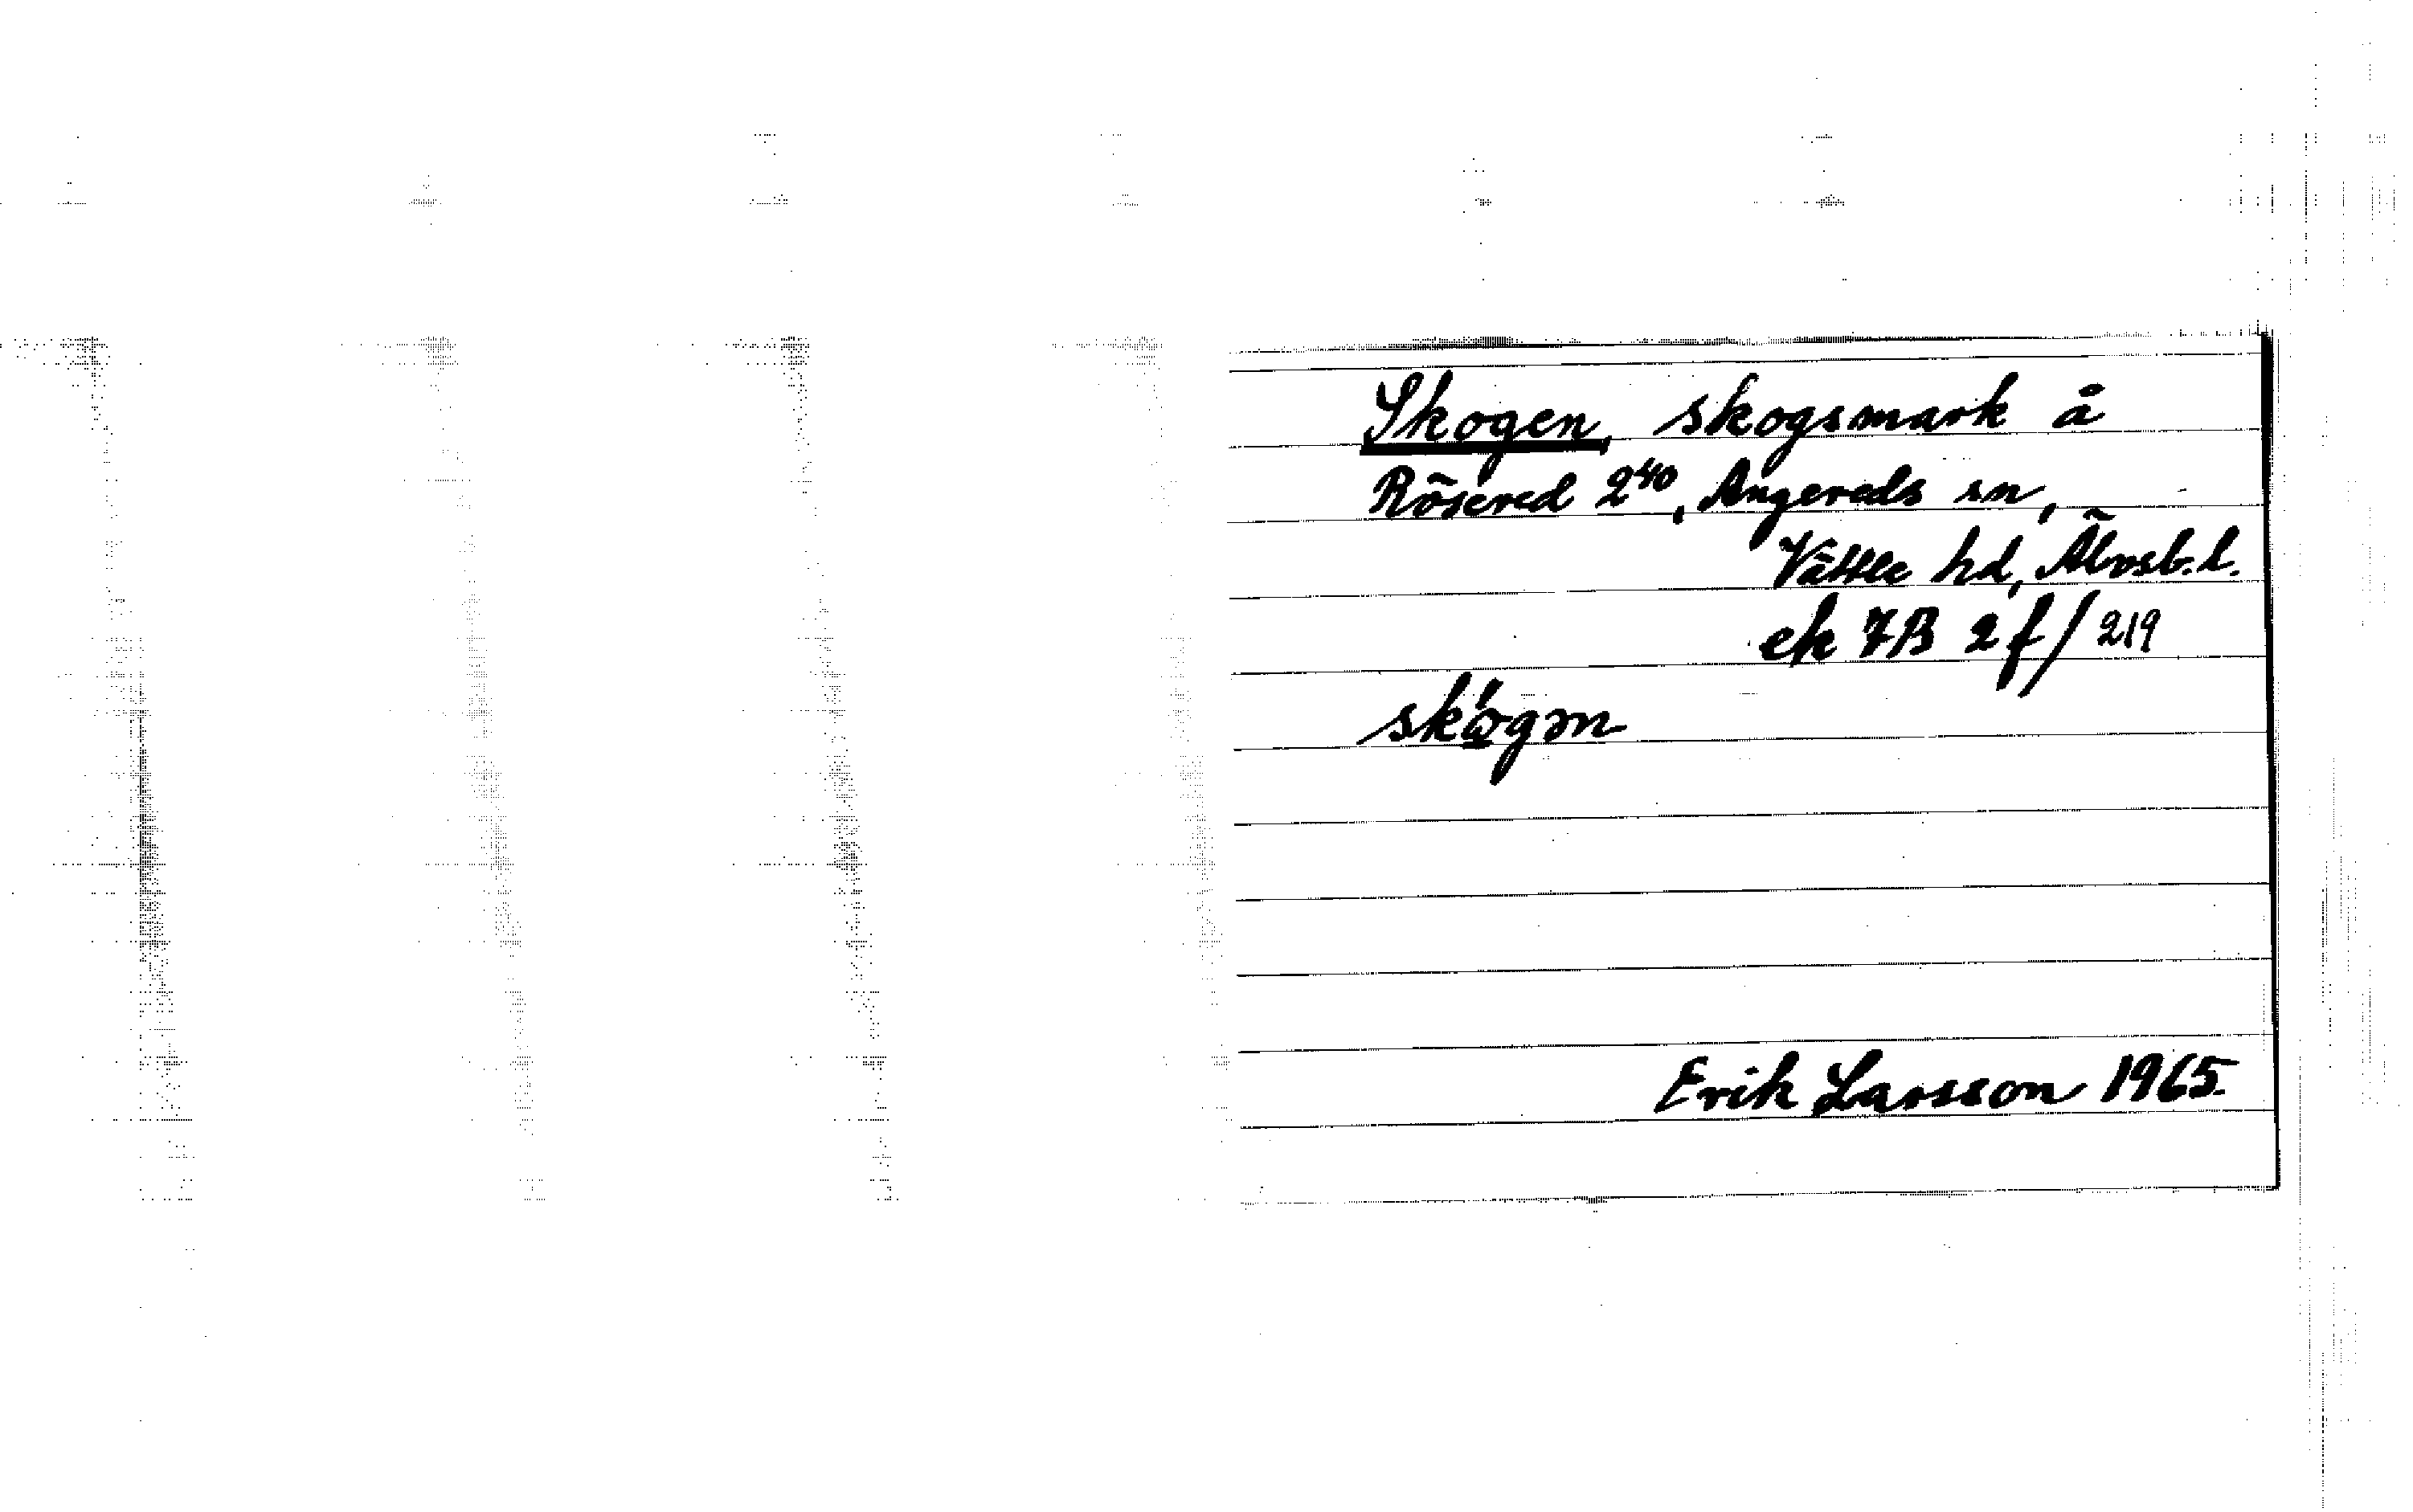 Skogen, skogsmark å
Rösered 2⁴⁰, Angereds sn,
Vättle hd, Älvsb. l.
ek 7B 2f/219
skǫ́gən
Erik Larsson 1965